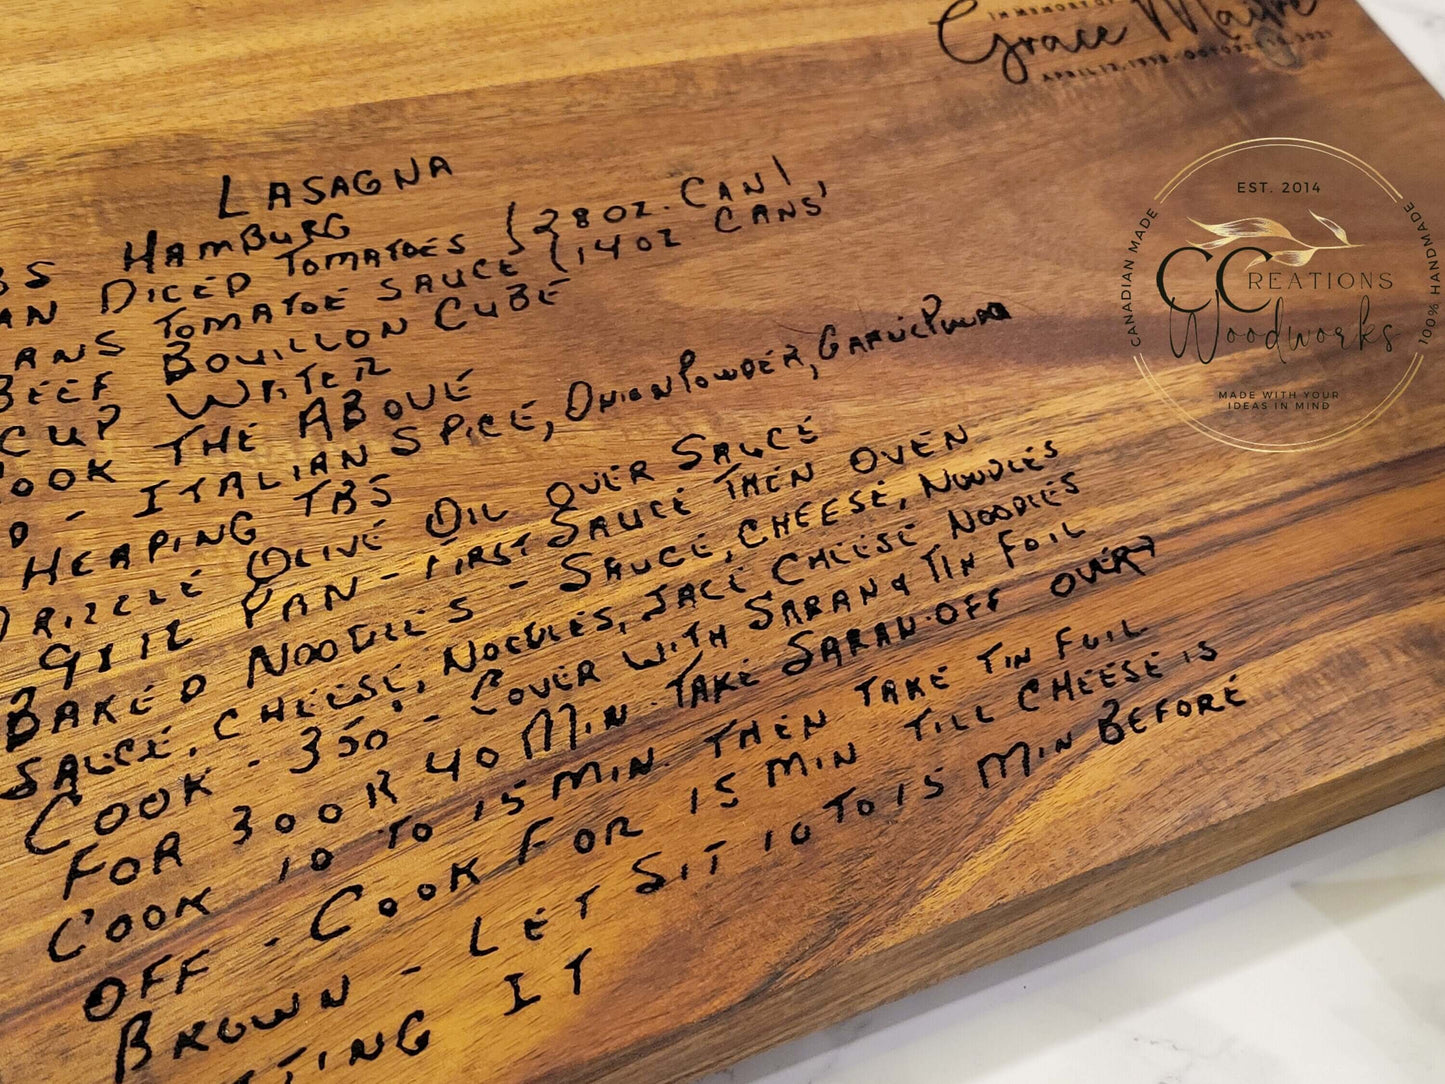 IN MEMORY OF
Grace Maitre
LASAGNA
BS HAMBURG
AN DICED TOMATOES (28 OZ. CAN)
ANS TOMATOE SAUCE (14 OZ CANS)
BEEF BOUILLON CUBE
CUP WATER
OOK THE ABOVE
D - ITALIAN SPICE, ONION POWDER, GARLIC POWDER
HEAPING TBS
DRIZZLE OLIVE OIL OVER SAUCE
9X12 PAN - FIRST SAUCE THEN OVEN
BAKED NOODLES - SAUCE, CHEESE, NOODLES
SAUCE, CHEESE, NOODLES, SAUCE CHEESE NOODLES
COOK - 350° - COVER WITH SARAN & TIN FOIL
FOR 30 OR 40 MIN. TAKE SARAN OFF OVER
COOK 10 TO 15 MIN. THEN TAKE TIN FOIL
OFF - COOK FOR 15 MIN TILL CHEESE IS
BROWN - LET SIT 10 TO 15 MIN BEFORE
TING IT
EST. 2014
CANADIAN MADE
100% HANDMADE
CCREATIONS
Woodworks
MADE WITH YOUR
IDEAS IN MIND